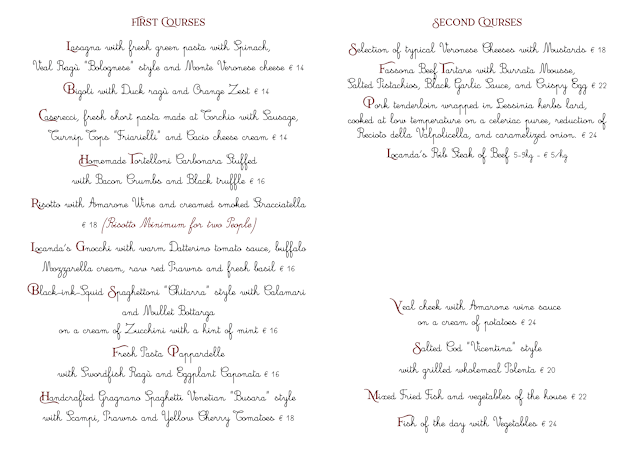 First Courses
Lasagna with fresh green pasta with Spinach,
Veal Ragù "Bolognese" style and Monte Veronese cheese € 14
Bigoli with Duck ragù and Orange Zest € 14
Caserecci, fresh short pasta made at Torchio with Sausage,
Turnip Tops "Friarielli" and Cacio cheese cream € 14
Homemade Tortelloni Carbonara Stuffed
with Bacon Crumbs and Black truffle € 16
Risotto with Amarone Wine and creamed smoked Stracciatella
€ 18 (Risotto Minimum for two People)
Locanda's Gnocchi with warm Datterino tomato sauce, buffalo
Mozzarella cream, raw red Prawns and fresh basil € 16
Black-ink-Squid Spaghettoni "Chitarra" style with Calamari
and Moullet Bottarga
on a cream of Zucchini with a hint of mint € 16
Fresh Pasta Pappardelle
with Swordfish Ragù and Eggplant Caponata € 16
Handcrafted Gragnano Spaghetti Venetian "Busara" style
with Scampi, Prawns and Yellow Cherry Tomatoes € 18
Second Courses
Selection of typical Veronese Cheeses with Moustards € 18
Fassona Beef Tartare with Burrata Mousse,
Salted Pistachios, Black Garlic Sauce, and Crispy Egg € 22
Pork tenderloin wrapped in Lessinia herbs lard,
cooked at low temperature on a celeriac puree, reduction of
Recioto della Valpolicella, and caramelized onion. € 24
Locanda's Rib Steak of Beef
Veal cheek with Amarone wine sauce
on a cream of potatoes € 24
Salted Cod "Vicentina" style
with grilled wholemeal Polenta € 20
Mixed Fried Fish and vegetables of the house € 22
Fish of the day with Vegetables € 24